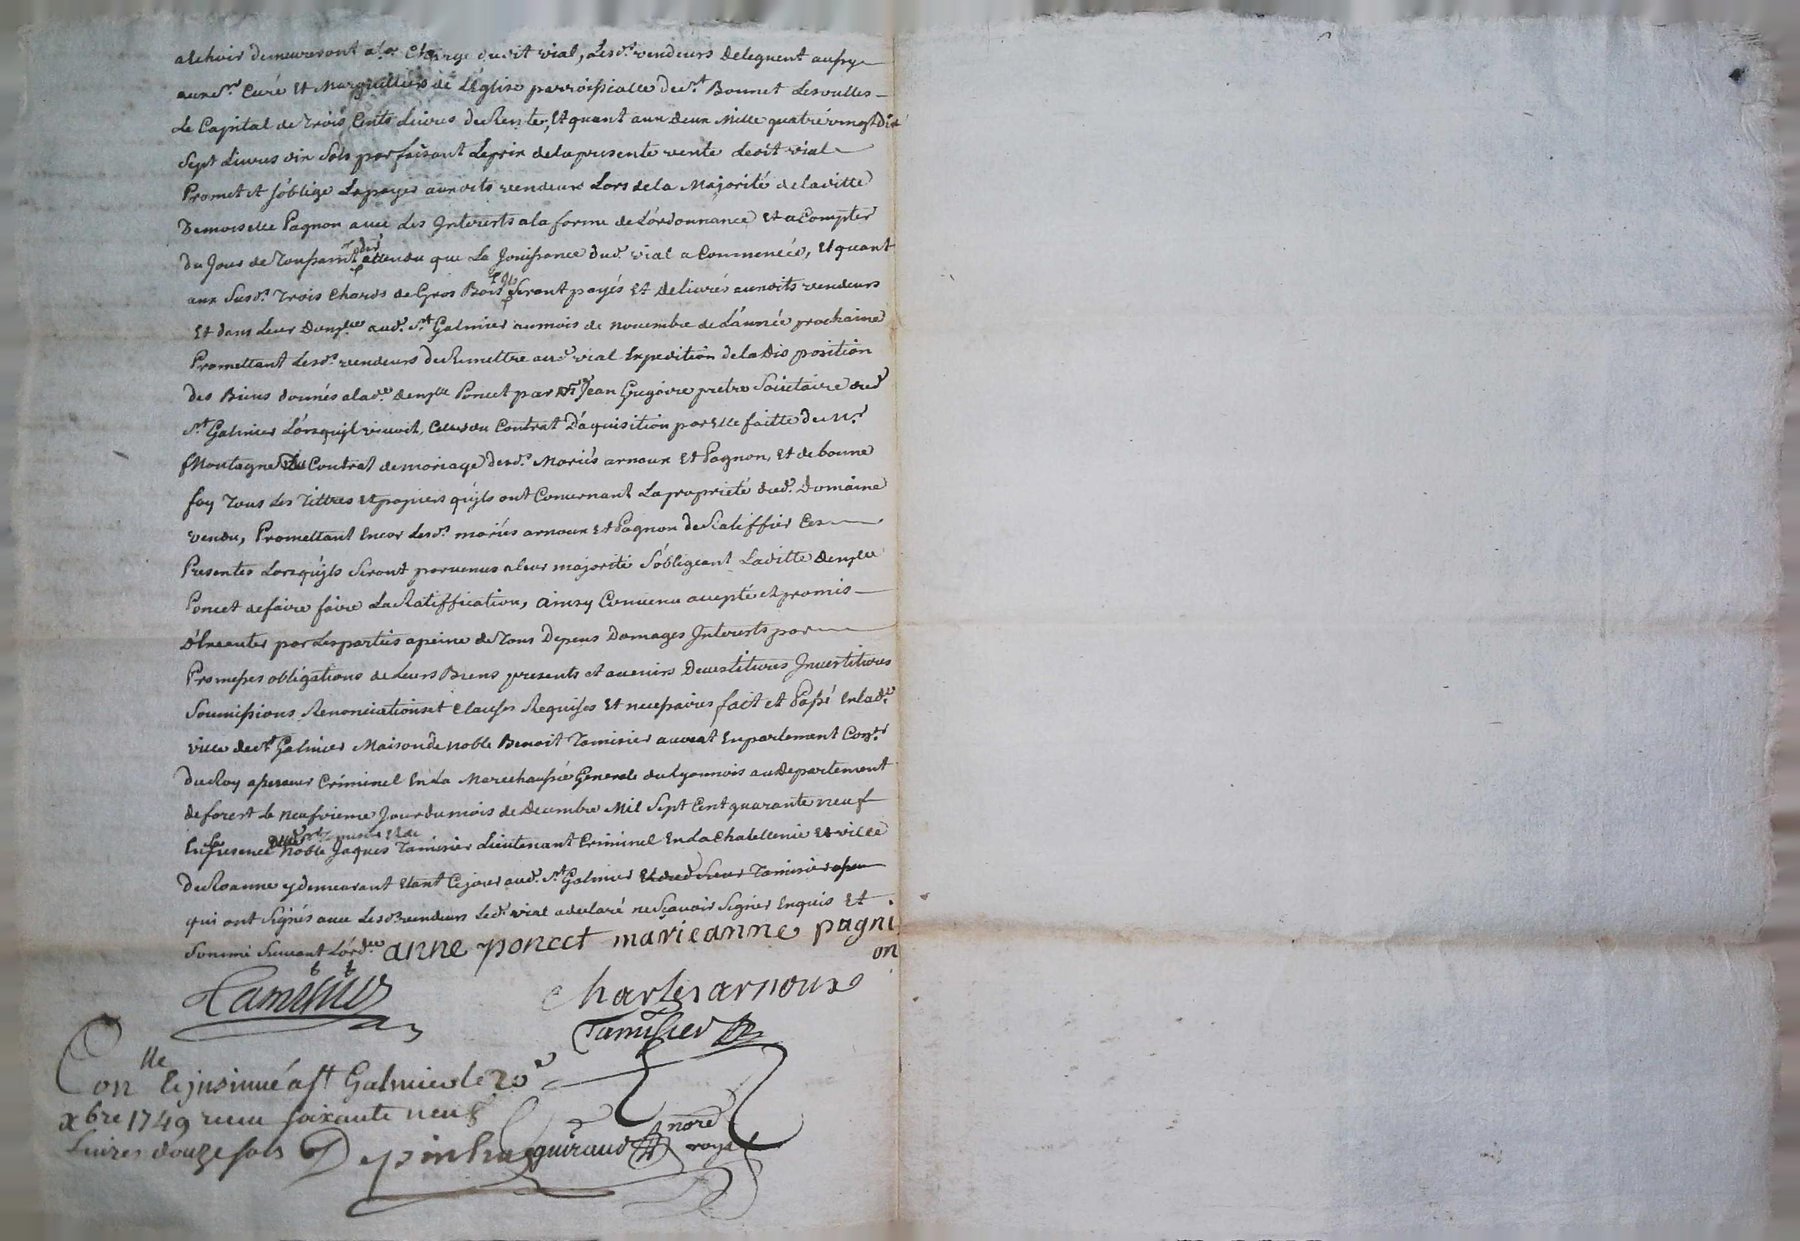 alchoir demeureront a la Charge dudit vial, Lesd.rs vendeurs deleguent
aux S.rs Curé et Marguilliers de L'église parroissialle de S.t Bonnet Lesoulles
Le Capital de Trois Cents Livres de Rente, Et quant aux deux Mille quatre vingt dix
Sept Livres dix Sols parfaisant Le prix de la presente vente ledit vial
Promet et s'oblige La payer auxdits vendeurs Lors de la Majorité de laditte
Demoiselle Pagnon avec Les Interests a la forme de L'ordonnance Et a Compter
du Jour de Toussaint attendu que La Jouissance dud. vial a Commencée, Et quant
aux Susd.ts Trois Chards de Gros Bois Seront payés Et delivrés auxdits vendeurs
Et dans Leur aud. S.t Galmier au mois de novembre de L'année prochaine
Promettant Lesd.rs vendeurs de Remettre aud. vial Expedition de la Disposition
des Biens donnés a lad.e dem.lle Poncet par M.re Jean Gregoire pretre Societaire dud.
S.t Galmier Lorsqu'il vivoit, Celle du Contrat D'aquisition par Elle faitte de M.r
Montagne Contrat de mariage desd.s Mariés arnoux Et Pagnon, Et de bonne
foy Tous Les Tittres Et papiers qu'ils ont Concernant La proprieté dud. Domaine
vendu, Promettant Encor Lesd.s mariés arnoux Et Pagnon de Ratiffier Ces
Presentes Lorsqu'ils Seront parvenus a leur majorité S'obligeant Laditte dem.lle
Poncet de faire faire La Ratiffication, ainsy Convenu accepté et promis
D'Executer par Les parties a peine de Tous Depens Domages Interests par
Promesses obligations de Leurs Biens presents et avenirs Devestitures Investitures
Soumissions Renonciations et clauses Requises Et necessaires fait et Passé En lad.e
ville de S.t Galmier Maison de noble Benoit Tamisier avocat En parlement Con.er
du Roy assesseur Criminel En La Marechaussée Generale du Lyonnois au departement
de forest le neufvieme Jour du mois de decembre Mil Sept Cent quarante neuf
En presence noble Jaques Tamisier Lieutenant Criminel En La Chatellenie Et ville
de Roanne y demeurant Etant Cejour aud. S.t Galmier Et dud. Sieur Tamisier
qui ont Signés avec Lesd.rs vendeurs Led. vial a declaré ne Scavoir Signer Enquis Et
Sommé Suivant L'ord.ce anne poncet marieanne pagni
on
Tamisier Charles arnoux
Tamisier
Con.lle & insinué a S.t Galmier le 20e
xbre 1749 recu soixante neuf
Livres douze sols Guiraud nore
royal